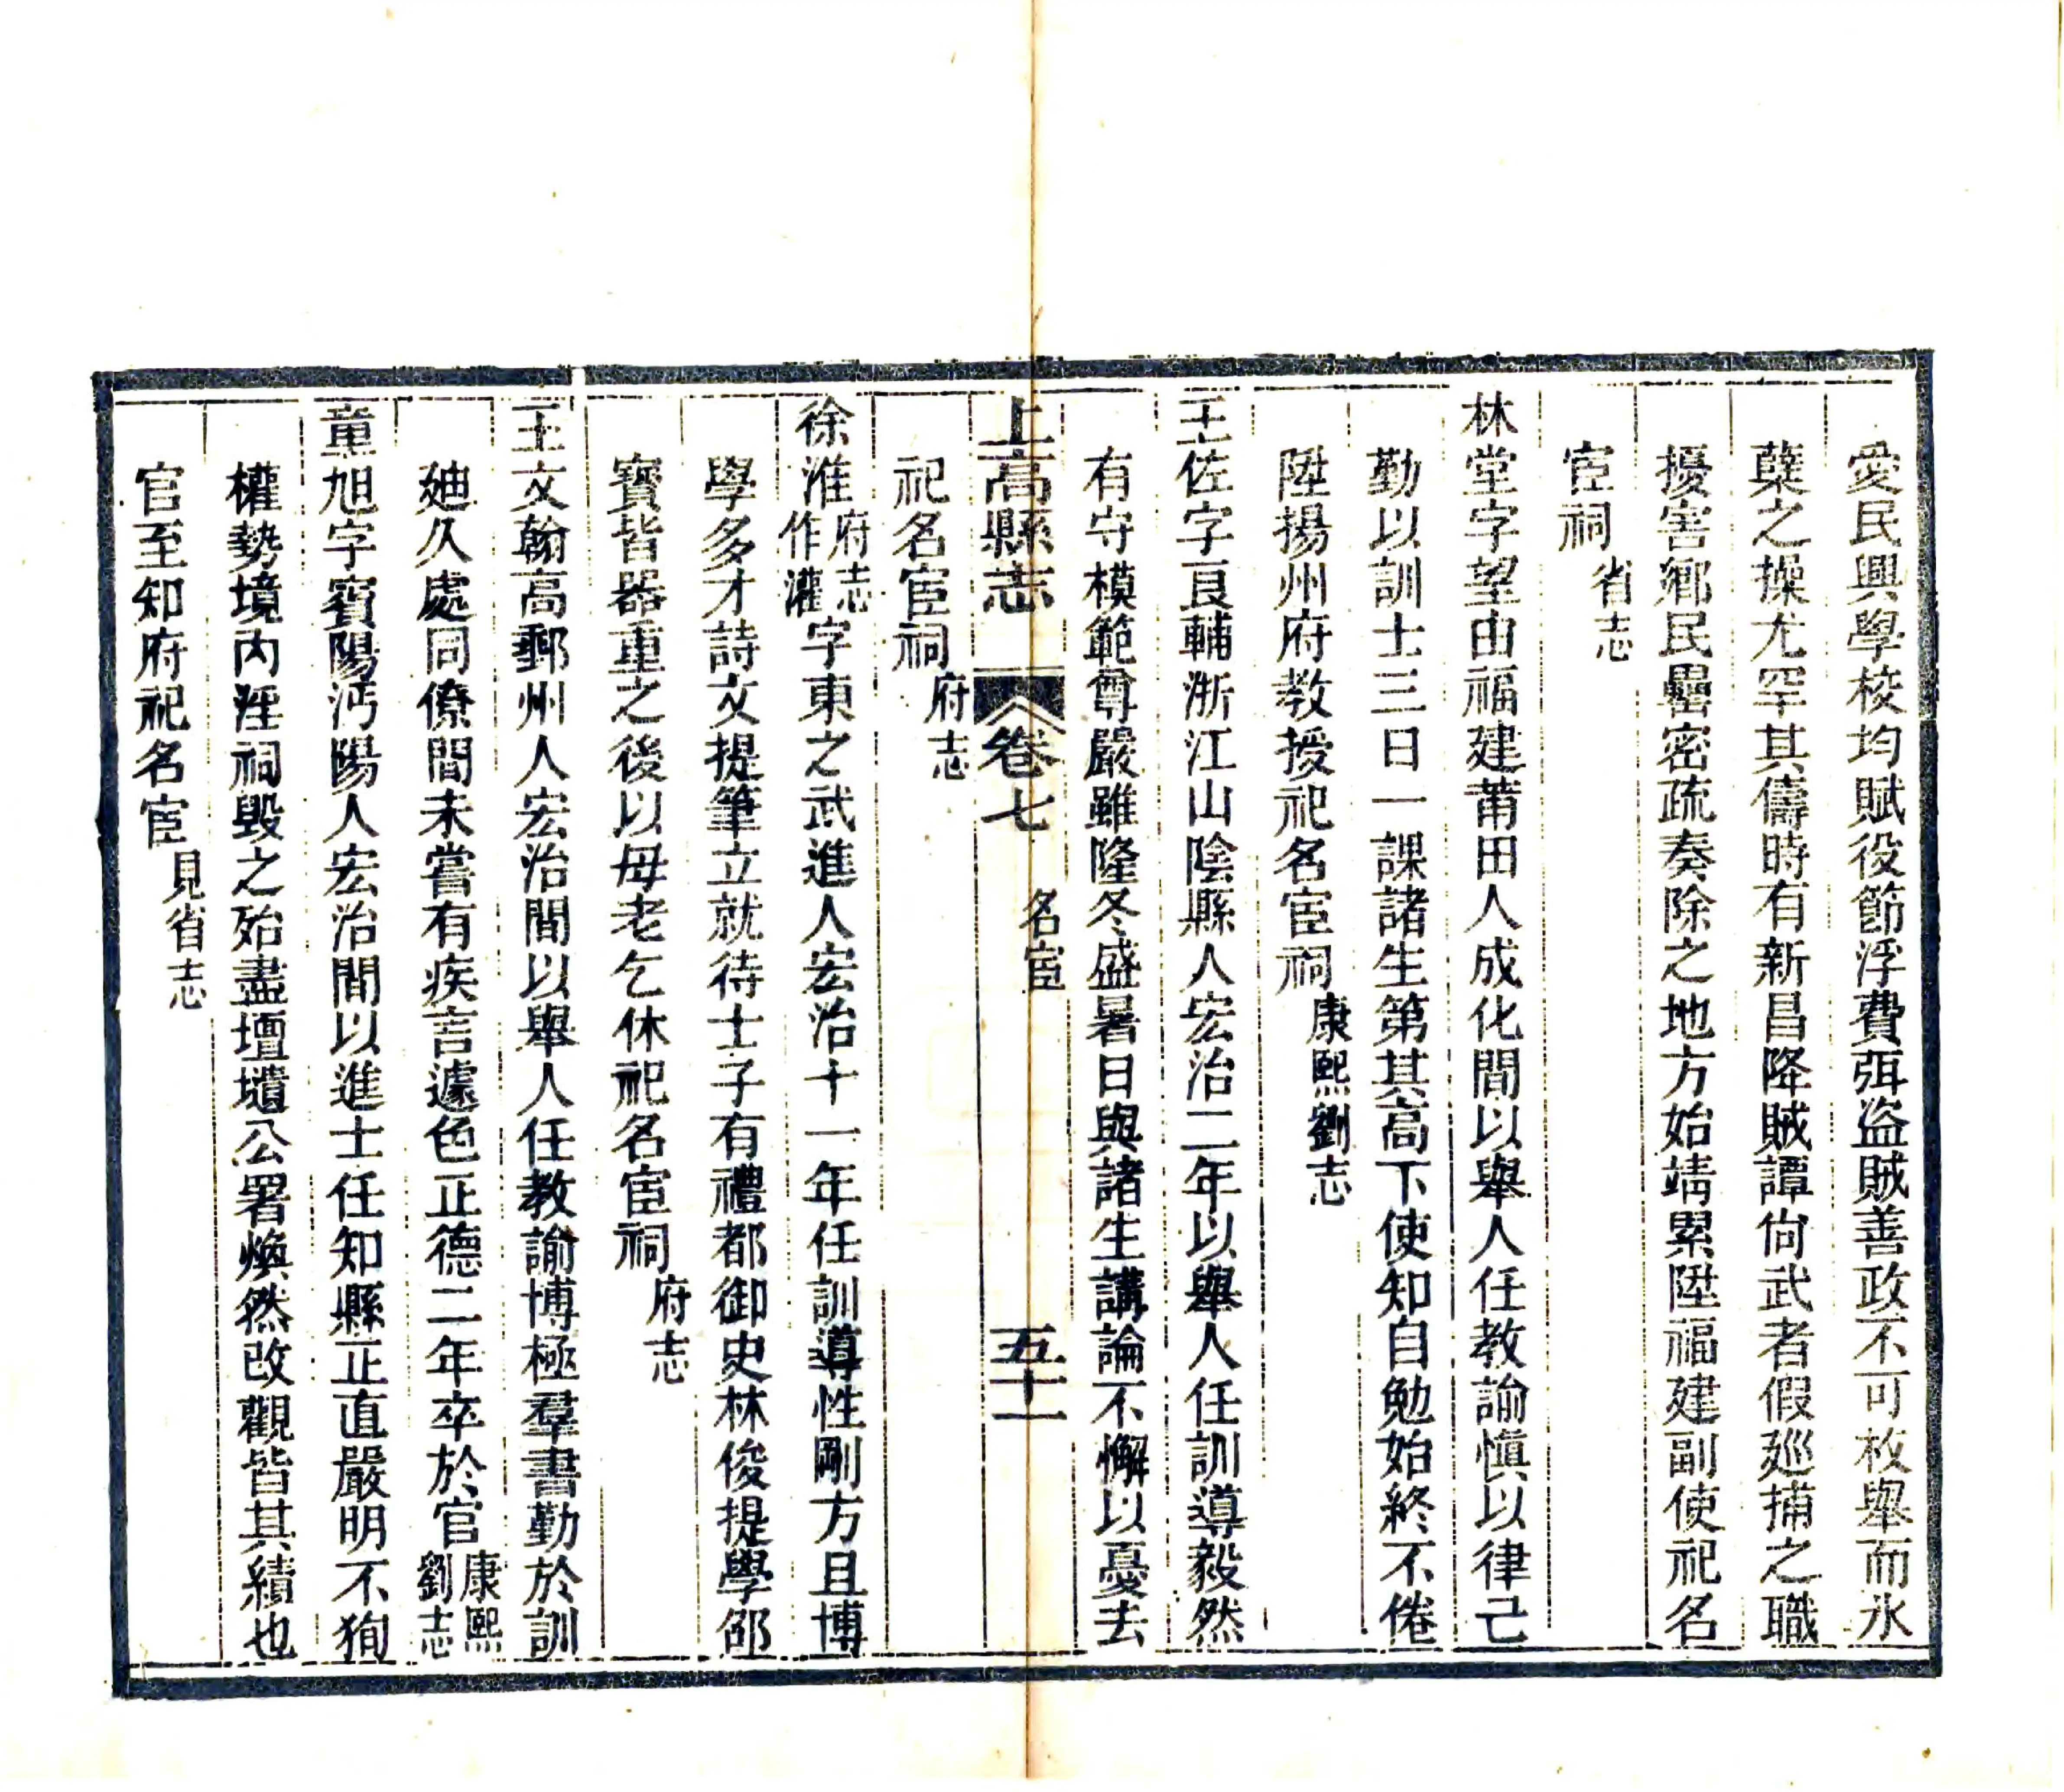 愛民興學校均賦役節浮費弭盜賊善政不可枚舉而氷
蘗之操尤罕其儔時有新昌降賊譚尙武者假廵捕之職
擾害鄉民曇密疏奏除之地方始靖累陞福建副使祀名
宦祠省志
林堂字望由福建莆田人成化間以舉人任教諭愼以律己
勤以訓士三日一課諸生第其高下使知自勉始終不倦
陞揚州府教授祀名宦祠康熙劉志
王佐字良輔浙江山陰縣人宏治二年以舉人任訓導毅然
有守模範尊嚴雖隆冬盛暑日與諸生講論不懈以憂去
上高縣志 卷七 名宦 五十一
祀名宦祠府志
徐淮府志作灌字東之武進人宏治十一年任訓導性剛方且博
學多才詩文提筆立就待士子有禮都御史林俊提學邵
寶皆器重之後以母老乞休祀名宦祠府志
王文翰高郵州人宏治間以舉人任教諭博極羣書勤於訓
廸久處同僚間未嘗有疾言遽色正德二年卒於官康熙劉志
童旭字賓陽沔陽人宏治間以進士任知縣正直嚴明不狥
權勢境內淫祠毀之殆盡壇壝公署煥然改觀皆其績也
官至知府祀名宦見省志